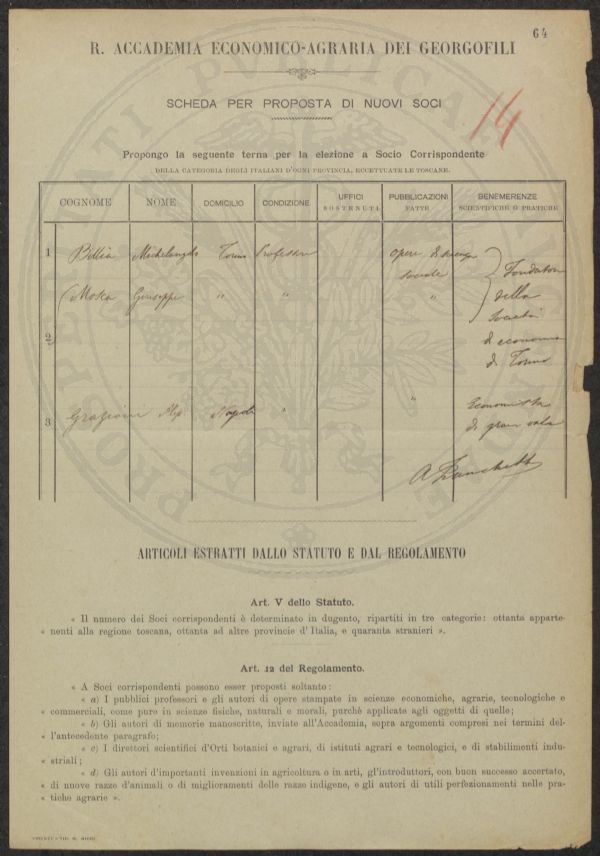 64
R. ACCADEMIA ECONOMICO-AGRARIA DEI GEORGOFILI
SCHEDA PER PROPOSTA DI NUOVI SOCI
14
Propongo la seguente terna per la elezione a Socio Corrispondente
DELLA CATEGORIA DEGLI ITALIANI D'OGNI PROVINCIA, ECCETTUATE LE TOSCANE.
COGNOME NOME DOMICILIO CONDIZIONE UFFICI SOSTENUTI PUBBLICAZIONI FATTE BENEMERENZE SCIENTIFICHE O PRATICHE
1 Billia Michelangelo Torino Professore opere di scienza
sociale
Mosca Giuseppe " " "
Fondatori
della
Società
2
di economia
di Torino
3 Graziani Napoli " "
Economista
di gran vala
PROSPERITATI PUBLICAE
ARTICOLI ESTRATTI DALLO STATUTO E DAL REGOLAMENTO
Art. V dello Statuto.
« Il numero dei Soci corrispondenti è determinato in dugento, ripartiti in tre categorie: ottanta apparte-
« nenti alla regione toscana, ottanta ad altre provincie d'Italia, e quaranta stranieri ».
Art. 12 del Regolamento.
« A Soci corrispondenti possono esser proposti soltanto:
« a) I pubblici professori e gli autori di opere stampate in scienze economiche, agrarie, tecnologiche e
« commerciali, come pure in scienze fisiche, naturali e morali, purchè applicate agli oggetti di quelle;
« b) Gli autori di memorie manoscritte, inviate all'Accademia, sopra argomenti compresi nei termini del-
« l'antecedente paragrafo;
« c) I direttori scientifici d'Orti botanici e agrari, di istituti agrari e tecnologici, e di stabilimenti indu-
« striali;
« d) Gli autori d'importanti invenzioni in agricoltura o in arti, gl'introduttori, con buon successo accertato,
« di nuove razze d'animali o di miglioramenti delle razze indigene, e gli autori di utili perfezionamenti nelle pra-
« tiche agrarie ».